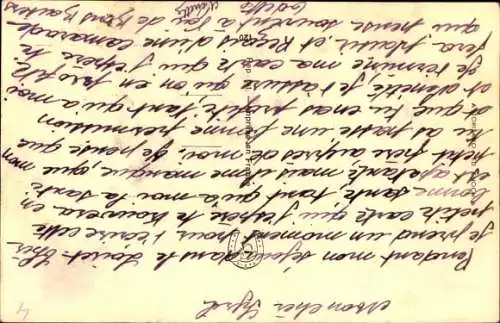 Mon cher
Pendant mon séjour dans le Loiret-Cher
je prend un moment pour t'écrire cette
petite carte qui j'espère te trouvera en
bonne santé, tant qu'à moi la santé
est epatante, mais il me manque, que mon
petit frère auprès de moi. Je pense que
tu as passée une bonne permission
et que tu en as profité, tant qu'a moi
et je t'assure qu'on en profite
Je termine ma carte qui j'espère te
fera plaisir, et Reçois d'une camarade
qui pense souvent à toi de Bons Baisers
4
120